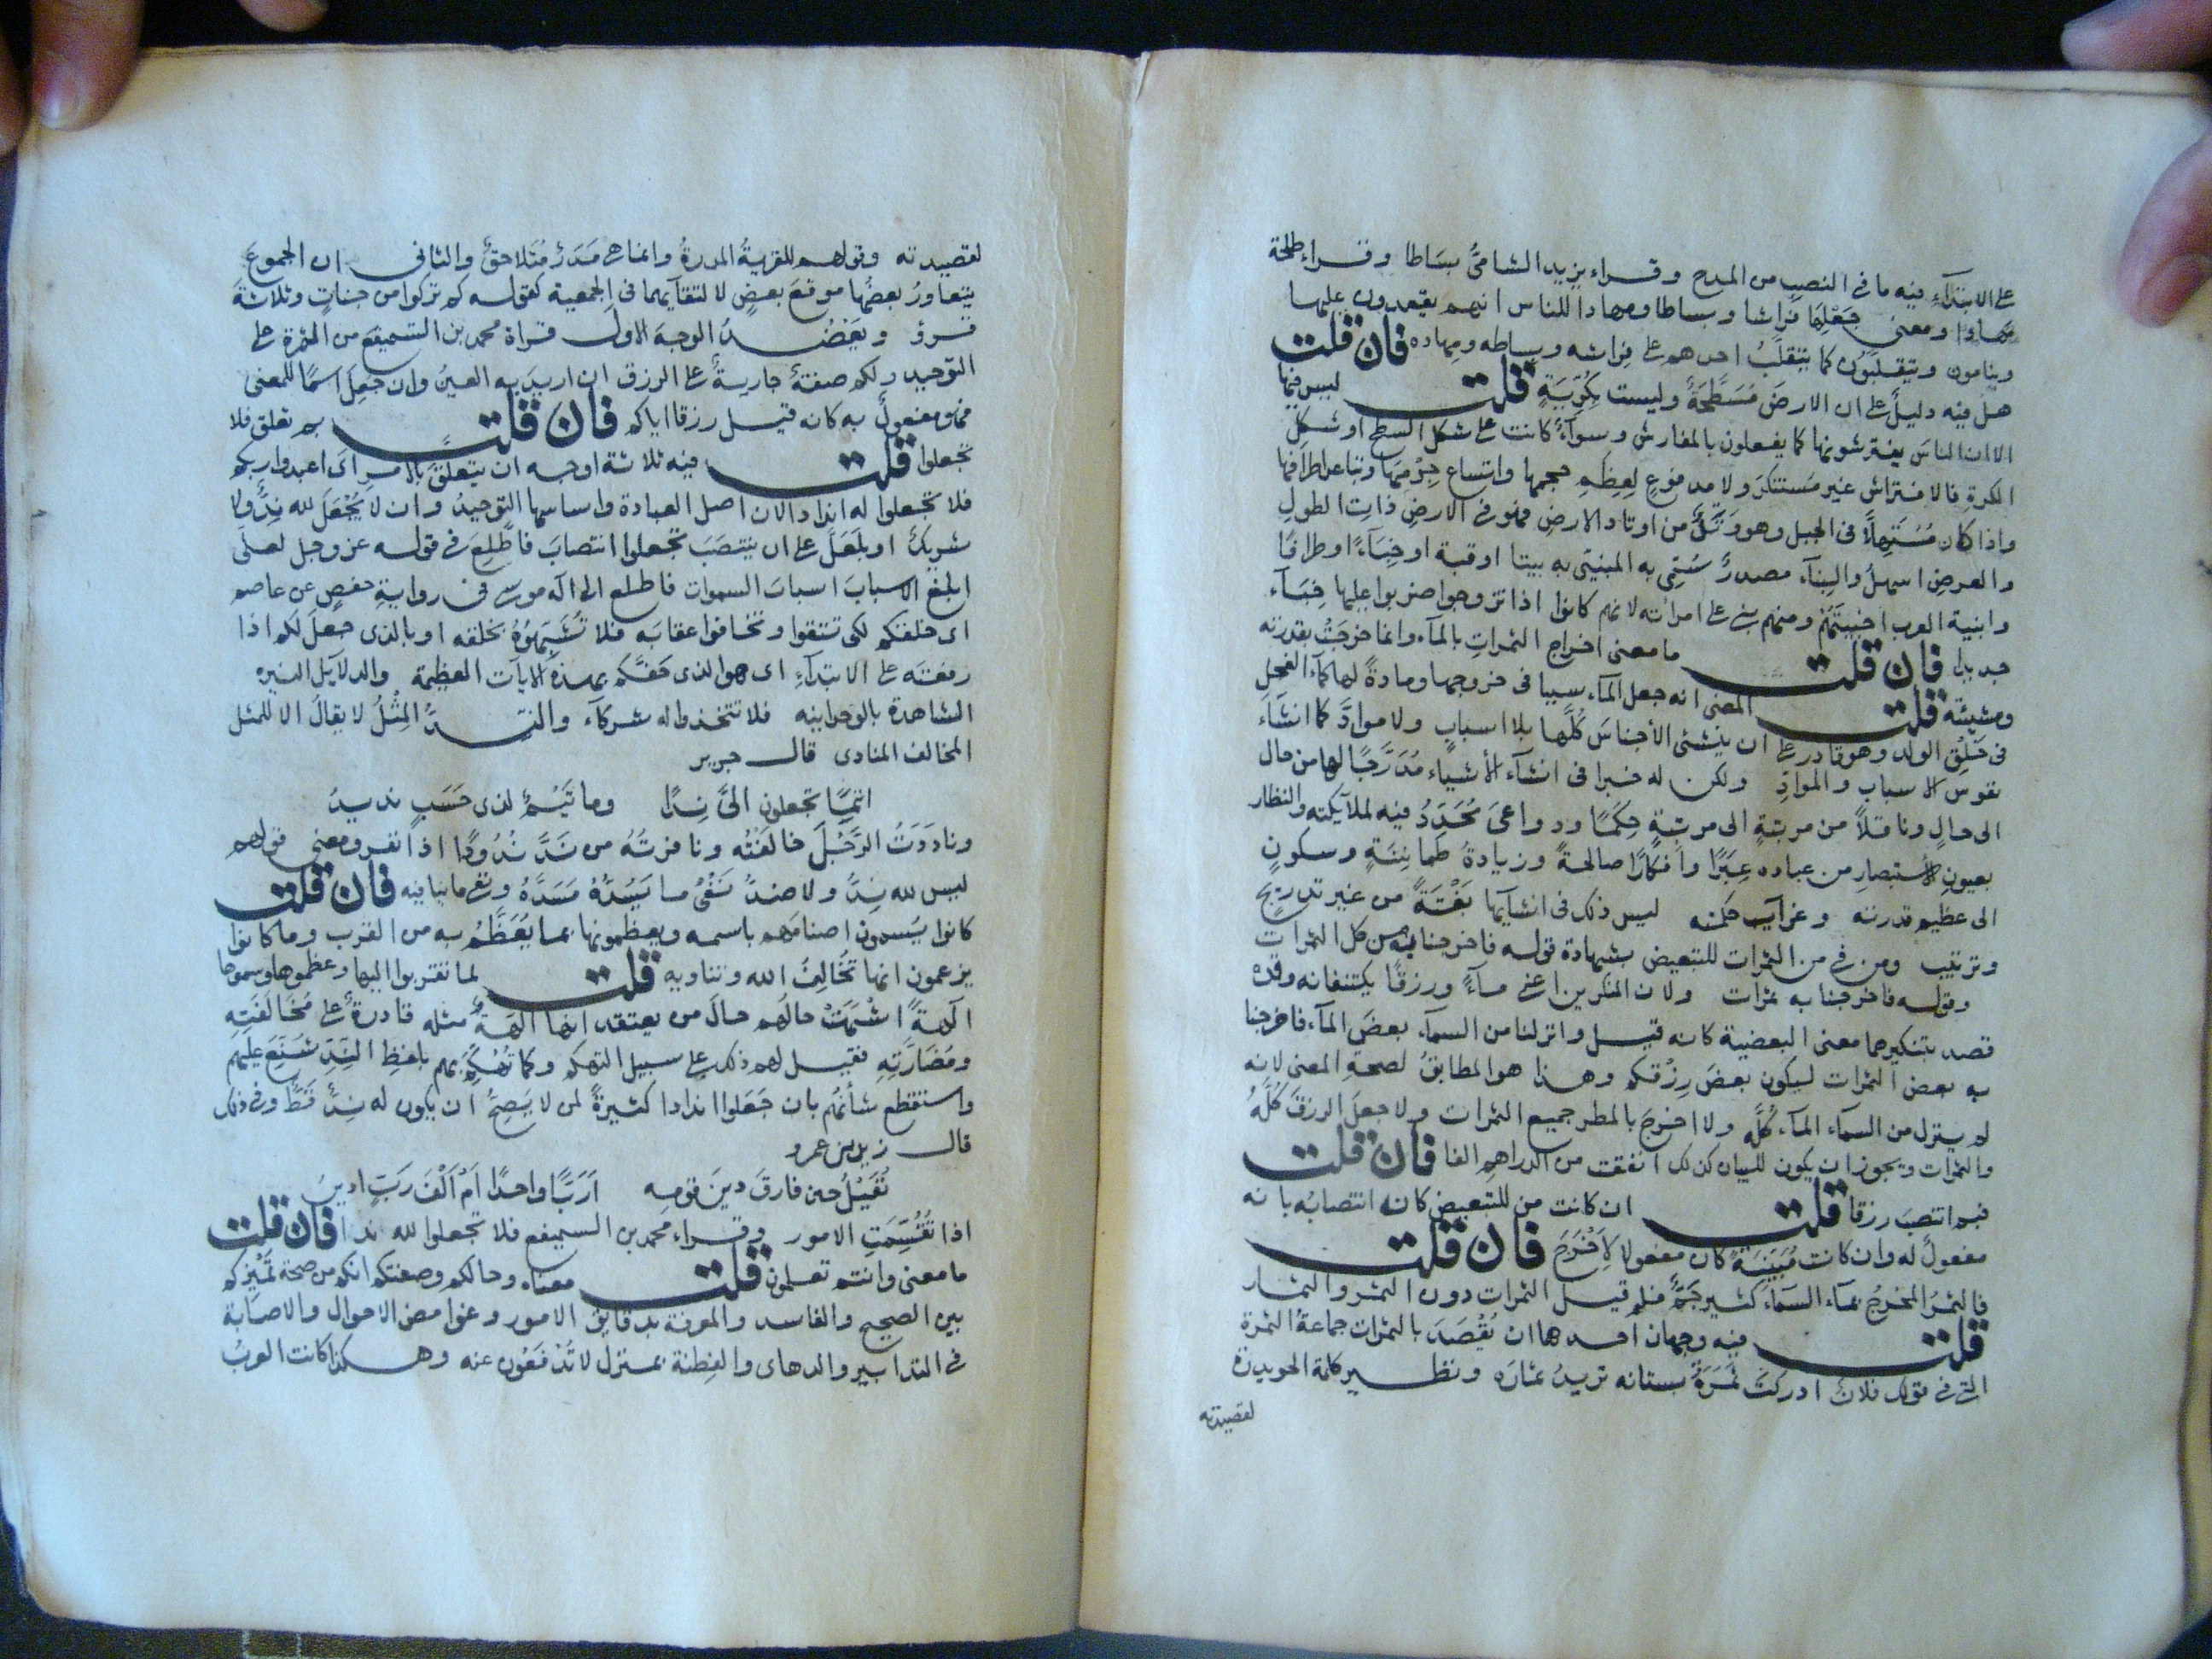 على الابتداء فيه ما فى النصب من المدح وقراء يزيد الشامىُّ بسَاطا وقراء طلحة
مهادا ومعنى جَعْلِهَا فراشا وبساطا ومهادا للناس انهم يقعدون عليها
وينامون ويتقلبون كما يتقلبُ احدهم على فِراشه وبساطه ومهاده فان قلت
هل فيه دليلٌ على ان الارضَ مُسَطَّحَةٌ وليست بكُرِّيَةٍ قلت ليس فيها
الا ان الناسَ يفترشونها كما يفعلون بالمفارش وسواءٌ كانت على شكل السطح او شكل
الكرة فالافتراش غير مستنكر ولا مدفوعٍ لِعِظَمِ حجمها واتساع جِرْمِهَا وتباعد اطرافها
واذا كان مُسْتَسْهلاً فى الجبل وهو وَتَدٌ من اوتاد الارض فهو فى الارض ذاتِ الطولِ
والعرضِ اسهلُ والبِناَء مصدرٌ سُمِّى به المبنِىّ به بيتا او قبة او خِباءً او طرافا
وابنية العرب اخبيتُهُمْ ومنهم بنى على امرأته لانهم كانوا اذا تزوجوا ضربوا عليها خِبَآء
جديدا فان قلت ما معنى اخراج الثمراتِ بالمآء وانما خرجَتْ بقدرته
ومشيئته قلت المعنى انه جعل المآء سببا فى خروجها ومادةً لها كمآء الفحل
فى خَلْقِ الولد وهو قادر على ان ينشئ الأجناسَ كُلَّها بلا اسبابٍ ولا موادَّ كما انشَاَ
نفوس الاسباب والموادِّ ولكن له خبرا فى انشآء الأشياء مُدَرَّجًا لها من حال
الى حالٍ وناقلاً من مرتبةٍ الى مرتبةٍ حِكَمًا ودواعىَ مُجَدَدُ فيه لملآيكته والنظار
بعيونِ الاستبصارِ من عباده عِبَرًا وافكارًا صالحةً وزيادةُ طمانِينَةٍ وسكونٍ
الى عظيم قدرته وغرآيب حكمته ليس ذلك فى انشآيها بَغْتَةً من غير تدريجٍ
وترتيب ومن فى من الثمرات للتبعيض بشهادة قوله فاخرجنا به من كل الثمرات
وقوله فاخرجنا به ثمرات ولان المنكرين اعنى مآءً ورزقًا يكتنفانه وقد
قصد بتنكيرهما معنى البعضية كانه قيل وانزلنا من السمآء بعضَ المآء فاخرجنا
به بعض الثمرات ليكون بعضَ رِزْقكم وهذا هو المطابقُ لصحةِ المعنى لانه
لم ينزل من السمآء المآء كُلَّه ولا اخرَجَ بالمطر جميع الثمرات ولا جعلَ الرزقَ كُلَّهُ
والثمرات ويجوز ان يكون للبيان كقولك انفقت من الدراهم الفا فان قلت
فبم انتصبَ رزقا قلت ان كانت من للتبعيض كان انتصابُه بانه
مفعولٌ له وان كانت مُبَيِّنَةً كان مفعولا لاَخْرَجَ فان قلت
فالثمرُ المخرجُ بمآء السمآء كثيرٌ جَمٌّ فلم قيل الثمرات دون الثمر والثمار
قلت فيه وجهان احدهما ان يُقْصَدَ بالثمرات جماعةُ الثمرة
التى فى قولك فلانٌ ادركتْ ثَمَرَةُ بستانه تريدُ ثمارَه ونظيره كلمة الحويدرة
لقصيدته
لقصيدته وقولهم للقرية المدرةُ وانما هى مَدَرٌ مُتَلاحقٌ والثانى ان الجموع
يتعاورُ بعضُها موقعَ بعضٍ لالتقآيهما فى الجمعية كقوله كم تركوا من جناتٍ وثلاثةَ
قروءٍ ويَعْضُدُ الوجهَ الاول قراة محمد بن السميقع من الثمرة على
التوحيد ولكم صفةٌ جاريةٌ على الرزق ان اريد به العينُ وان جُعِلَ اسمًا للمعنى
فهو مفعولٌ به كانه قيل رزقا اياكم فان قلت بم تعلق فلا
تجعلوا قلت فيه ثلاثة اوجه ان يتعلقَ بالامر اى اعبدوا ربكم
فلا تجعلوا له اندادا لان اصل العبادة واساسها التوحيدُ وان لا يُجْعَلَ لله نِدٌّ ولا
شريكٌ او بلعَلَّ على ان ينتصَبَ تجعلوا انتصابَ فاطَّلِعَ فى قوله عز وجل لعلى
ابلغ الاسبابَ اسبابَ السموات فاطلع الى اله موسى فى روايةِ حفصٍ عن عاصم
اى خلقكم لكى تتقوا وتخافوا عقابَه فلا تُشَبِّهُوْهُ بخلقه او بالذى جعلَ لكم اذا
رفعتَه على الابتدآءِ اى هو الذى حَفَّكم بهذه الآيات العظيمة والدلآيل النيره
الشاهدة بالوحدانيه فلا تتخذوا له شركآء والنِّدُّ المِثْلُ لا يقالُ الا للمثل
المخالف المنادى قال جرير
اتَيْمًا تجعلون الىَّ نِدًا وما تَيْمٌ لذى حَسَبٍ نديدُ
وناددَتُ الرَّجُلَ خالَفتُه ونافرتَهُ من نَدَّ نُدُودًا اذا نفر ومعنى قولهم
ليس لله نِدٌّ ولا ضدٌّ نَفْىُ ما يَسُدُّ مَسَدَّهُ ونفى ما ينافيه فان قلت
كانوا يُسمون اصنامَهم باسمه ويعظمونها بما يُعَظَّمُ به من القرب وما كانوا
يزعمون انها تُخَالِفُ الله وتناويه قلت لما تقربوا اليها وعظموها وسموها
آلهةً اشْبَهَتْ حالُهم حالَ من يعتقد انها آلهَةٌ مثله قادرةٌ على مُخَالَفَتِه
ومُضَارَّتِهِ فقيل لهم ذلك على سبيل التهكم وكما تُهُكِّمَ بهم بلفظِ النِّدِّ شَنَّعَ عليهم
واستفظع شأنَهُم بان جَعَلوا اندادا كثيرةً لمن لا يَصِحُّ ان يكون له نِدٌّ قَطُّ وفى ذلك
قال زيد بن عمرو
نُفَيْلُ حين فارقَ دينَ قومِه اَرَبًّا واحدًا اَمْ اَلْفَ رَبٍّ ادينُ
اذا تَقُسِّمَتِ الامور وقراء محمد بن السميفع فلا تجعلوا لله ندا فان قلت
ما معنى وانتم تعلمون قلت معناه وحالكم وصفتكم انكم من صحة تمييزكم
بين الصحيح والفاسد والمعرفة بدقايق الامور وغوامض الاحوال والاصابة
فى التدابير والدهاى والفِطنة بمنزل لا تُدْفَعُون عنه وهكذا كانت العربُ